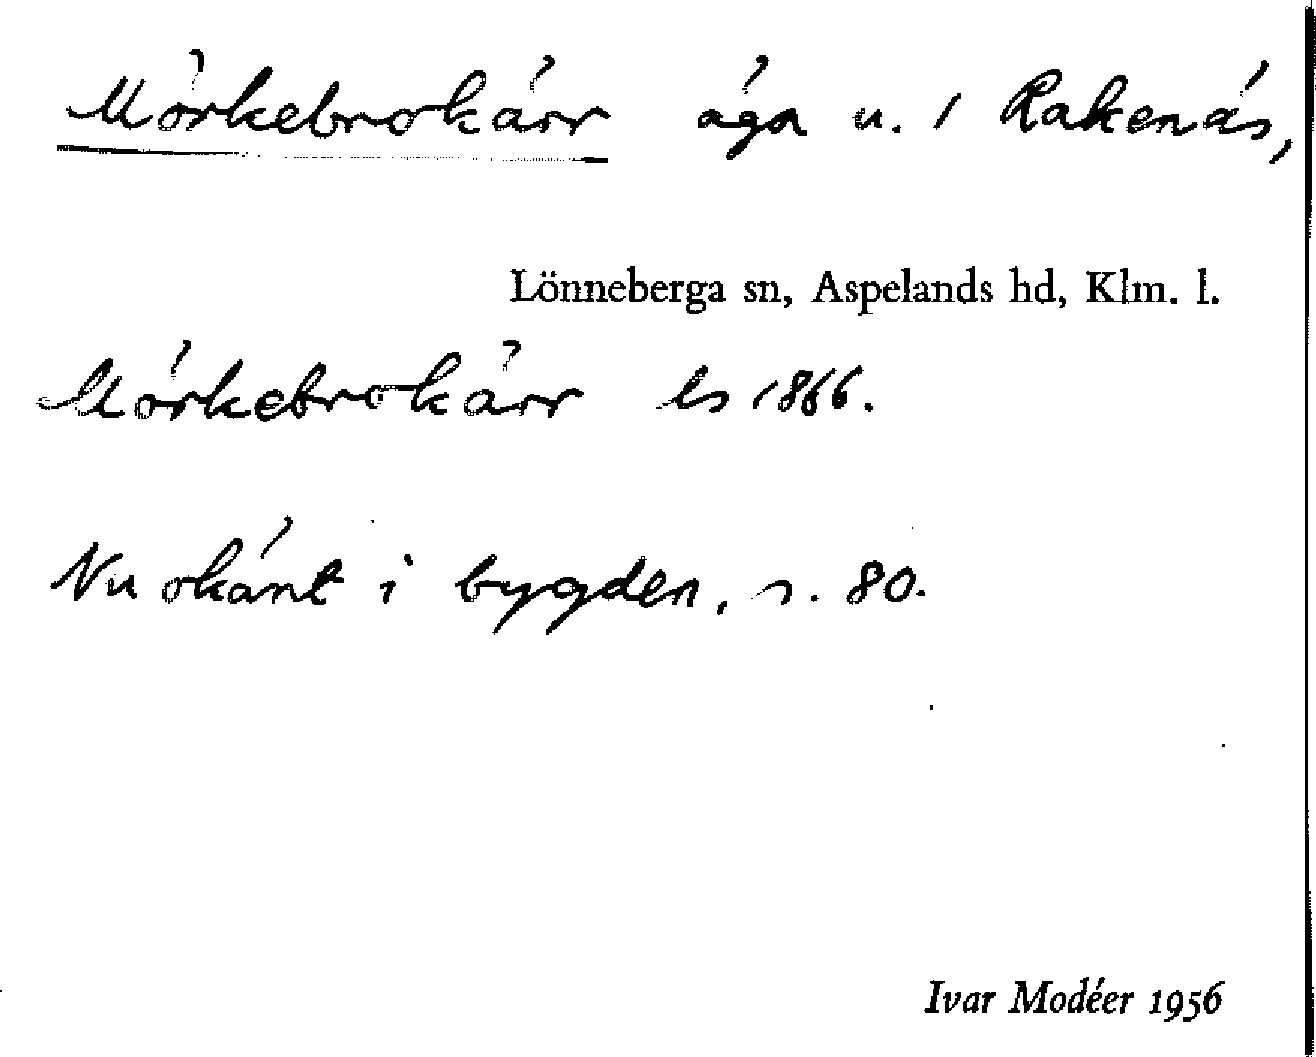 Mörkebrokärr äga u. 1 Rakenäs,
Lönneberga sn, Aspelands hd, Klm. l.
Mörkebrokärr ls 1866.
Nu okänt i bygden, s. 80.
Ivar Modéer 1956